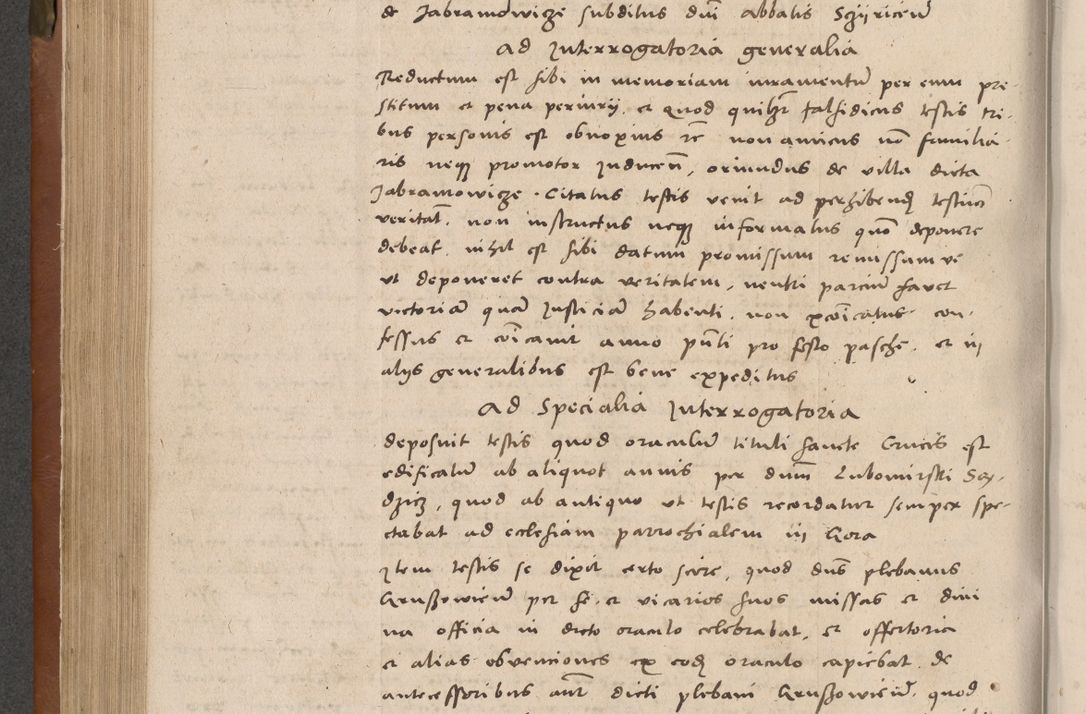 de Jabramowicze subditus dni abbatis Scziricien
Ad Interrogatoria generalia
Reductum est sibi in memoriam iuramentu per eum pre-
stitum et pena periurij. et quod quilibet falsidicus testis tri-
bus personis est obnoxius etc non amicus nec familia-
ris neque promotor Inducen, oriundus de villa dicta
Jabramowicze. Citatus testis venit ad perhibend testimo
veritat. non instructus neque informatus quo deponere
debeat. nihil est sibi datum promissum remissum ve
ut deponeret contra veritatem, neutri parcium favet
victoria qua Justicia habenti. non excoicatus con-
fessus et coicavit anno pnti pro festo pasche. et in
alijs generalibus est bene expeditus
Ad Specialia Interrogatoria
deposuit testis quod oraculu tituli sancte Crucis est
edificatu ab aliquot annis per dnum Lubomirski Say-
dzicz, quod ab antiquo ut testis recordatur semper spe-
ctabat ad ecclesiam parrochialem in Gora
Item testis se dixit certo scire, quod dns plebanus
Gruszowicien per se. et vicarios suos missas et divi
na officia in dicto oraculo celebrabat, et offertoria
et alias obvenciones ex eod oraculo capiebat. de
antecessoribus aut dicti plebani Gruszowicien. quod